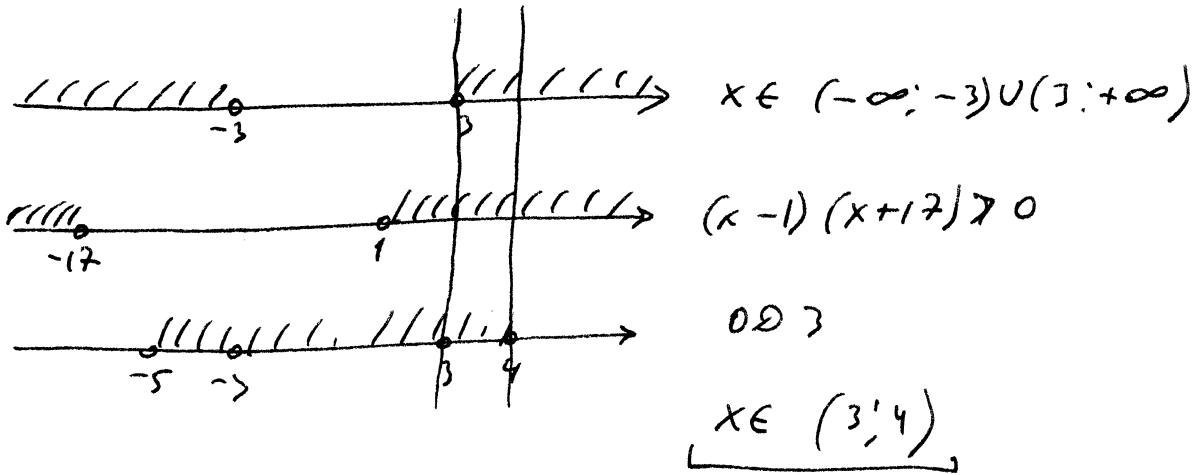 -3 3 x ∈ (-∞; -3) ∪ (3; +∞)
-17 1 (x - 1) (x + 17) > 0
-5 -3 3 4 ОДЗ
x ∈ (3; 4)